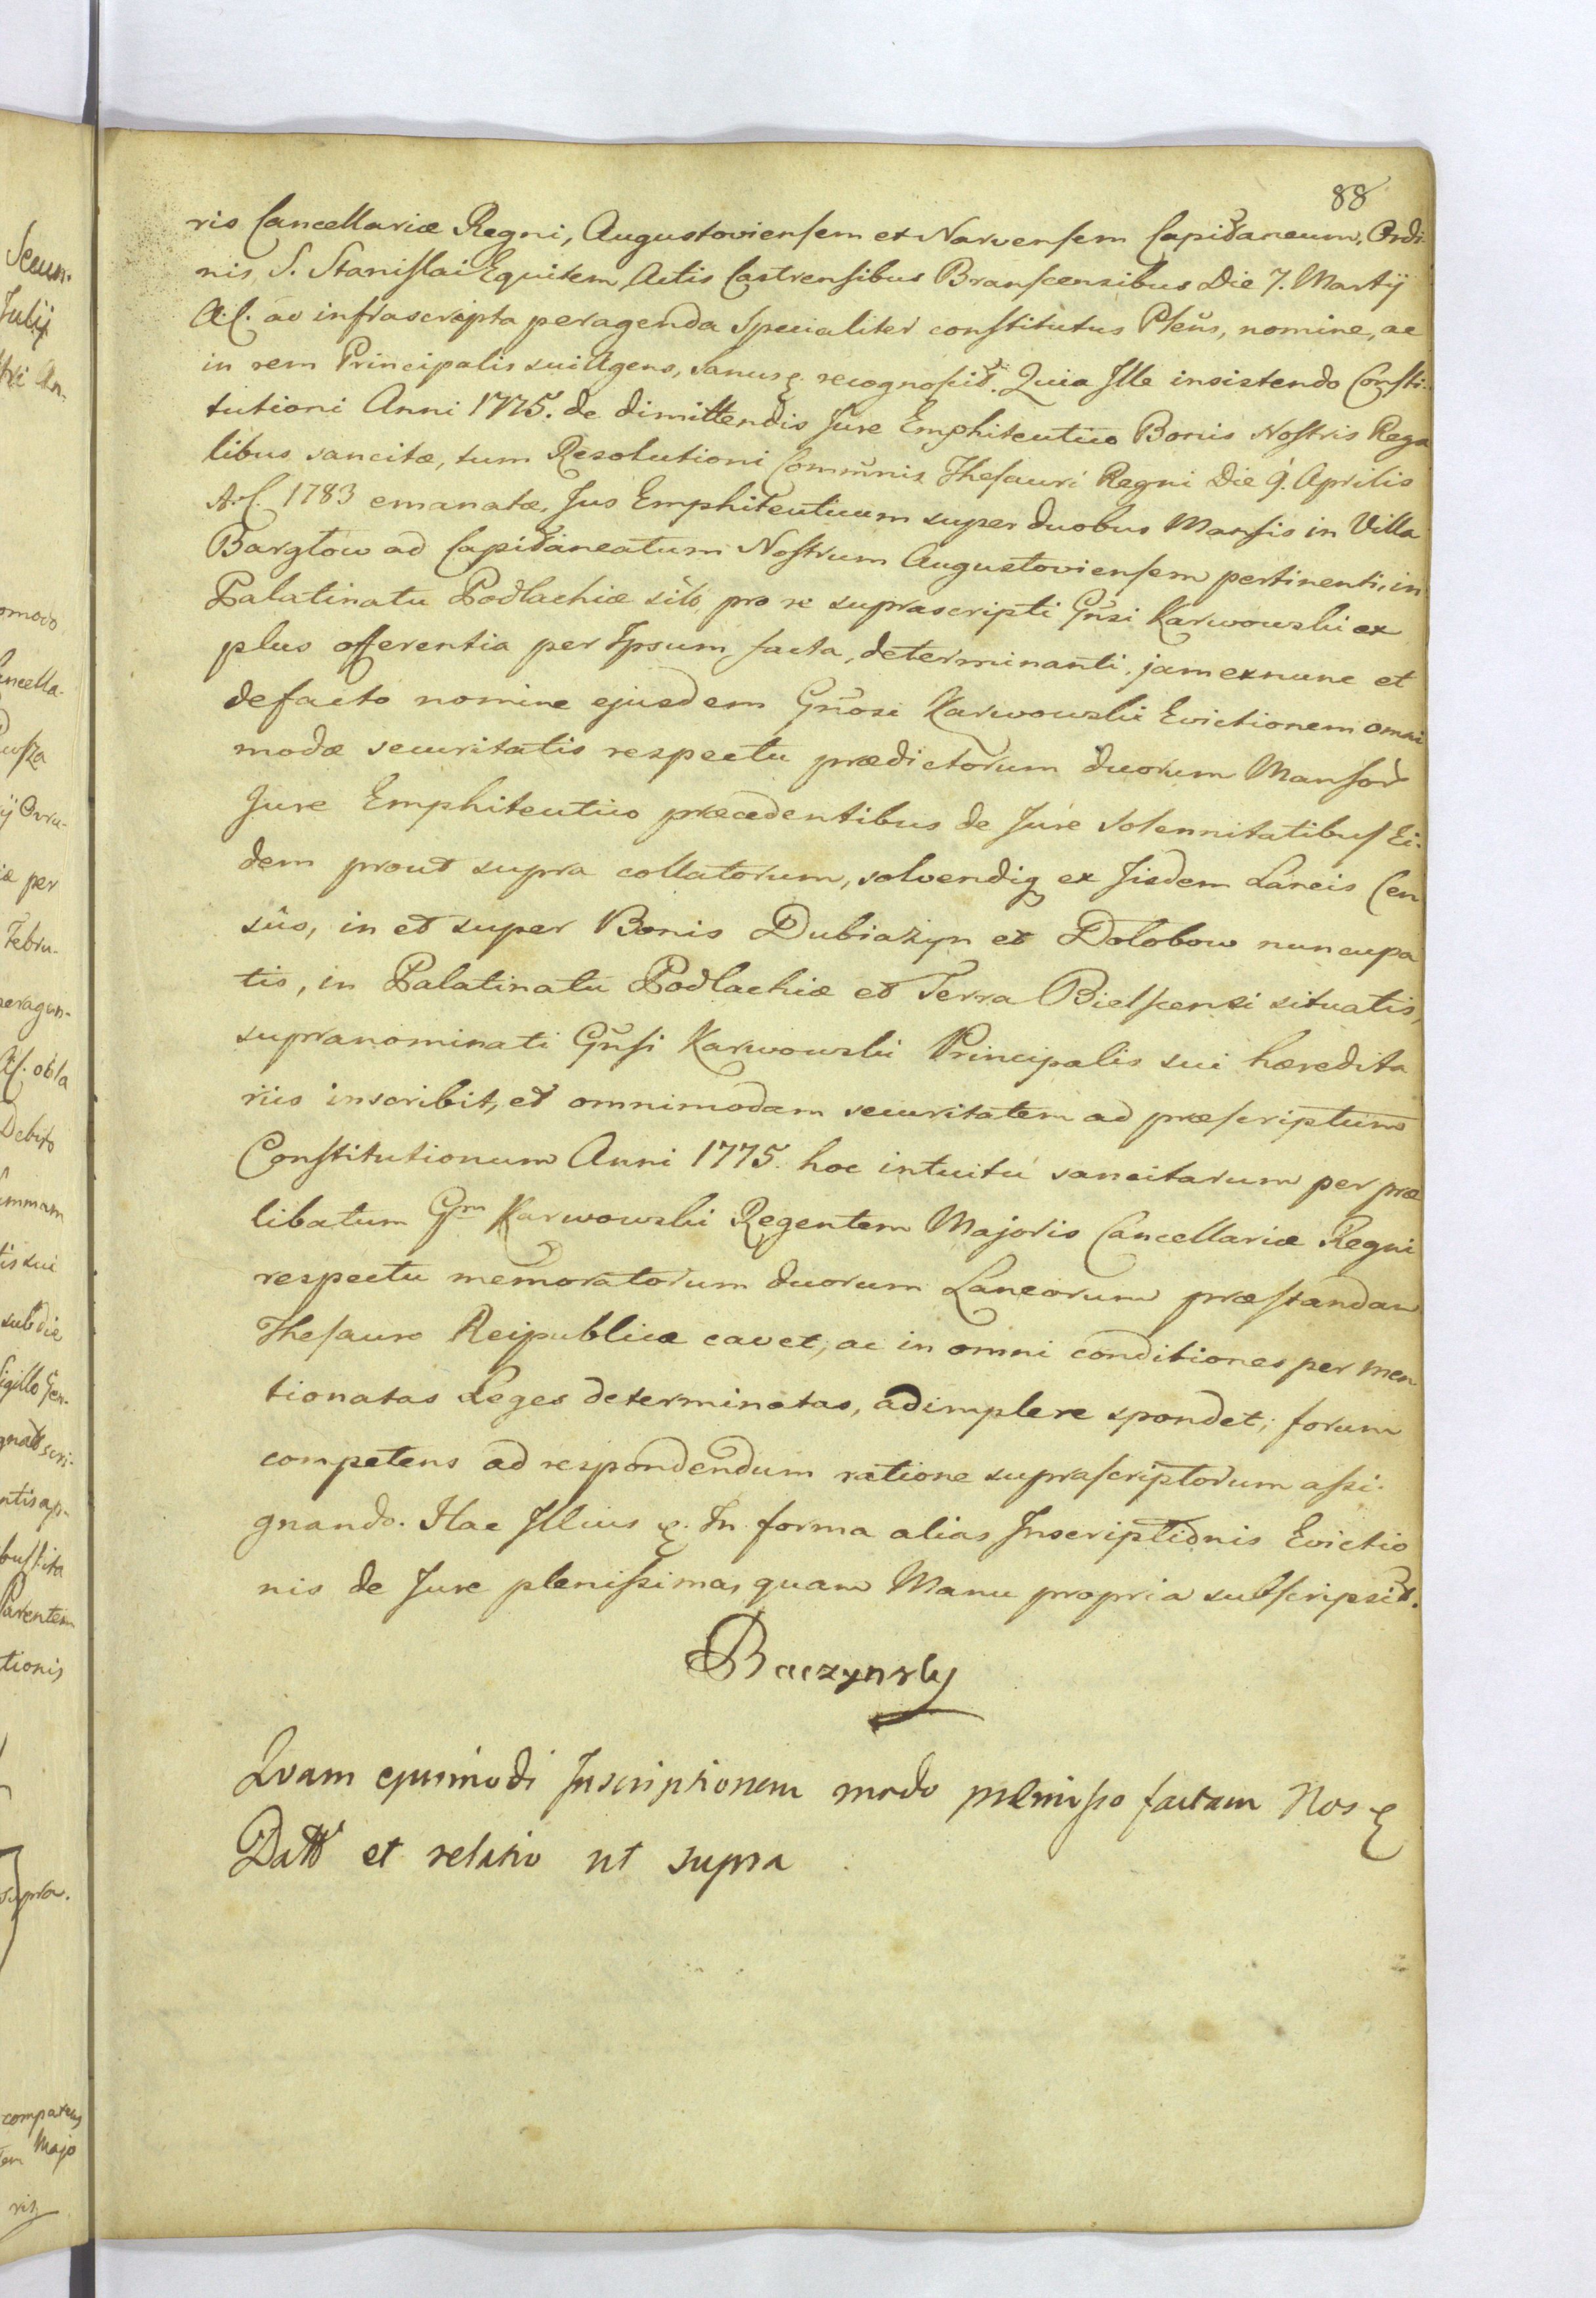 88
ris Cancellariæ Regni, Augustoviensem et Narvensem Capitaneum, Ordi-
nis S. Stanislai Equitem, Actis Castrensibus Branscensibus Die 7. Martij
A.C. ac infrascripta peragenda Specialiter constitutus Plēns, nomine, ac
in rem Principalis sui Agens, Sanus & recognoscit. Quia Ille insistendo Consti-
tutioni Anni 1775. de dimittendis Jure Emphiteutico Bonis Nostris Rega
libus sancitæ, tum Resolutioni Commūnis Thesauri Regni Die 9. Aprilis
A.C. 1783 emanatæ, Jus Emphiteuticum super duobus Mansis in Villa
Bargłow ad Capitaneatum Nostrum Augustoviensem pertinenti, in
Palatinatu Podlachiæ sito, pro re suprascripti Gn̄si Karwowski ex
plus offerentia per Ipsum facta, determinanti, jam ex nunc et
de facto nomine ejusdem Gn̄osi Karwowski Evictionem omni
modæ securitatis respectu prædictorum duorum Mansor̄
Jure Emphiteutico præcedentibus de Jure Solennitatibus Ei-
dem prout supra collatorum, solvendiq ex Iisdem Laneis Cen
sûs, in et super Bonis Dubiażyn et Dołobow nuncupa
tis, in Palatinatu Podlachiæ et Terra Bielscensi situatis,
supranominati Gn̄si Karwowski Principalis sui hæredita
riis inscribit, et omnimodam securitatem ad præscriptum
Constitutionum Anni 1775. hoc intuitu sancitarum per præ
libatum Gm Karwowski Regentem Majoris Cancellariæ Regni
respectu memoratorum duorum Laneorum præstandam
Thesauro Reipublicæ cavet, ac in omni conditiones per men
tionatas Leges determinatas, adimplere spondet; forum
competens ad respondendum ratione suprascriptorum assi-
gnando. Hac Illius &. In forma alias Inscriptionis Evictio
nis de Jure plenissima, quam Manu propria subscripsit.
Baczynsky
Quam ejusmodi Inscriptionem modo præmisso factam Nos &
Datt et relatio ut supra